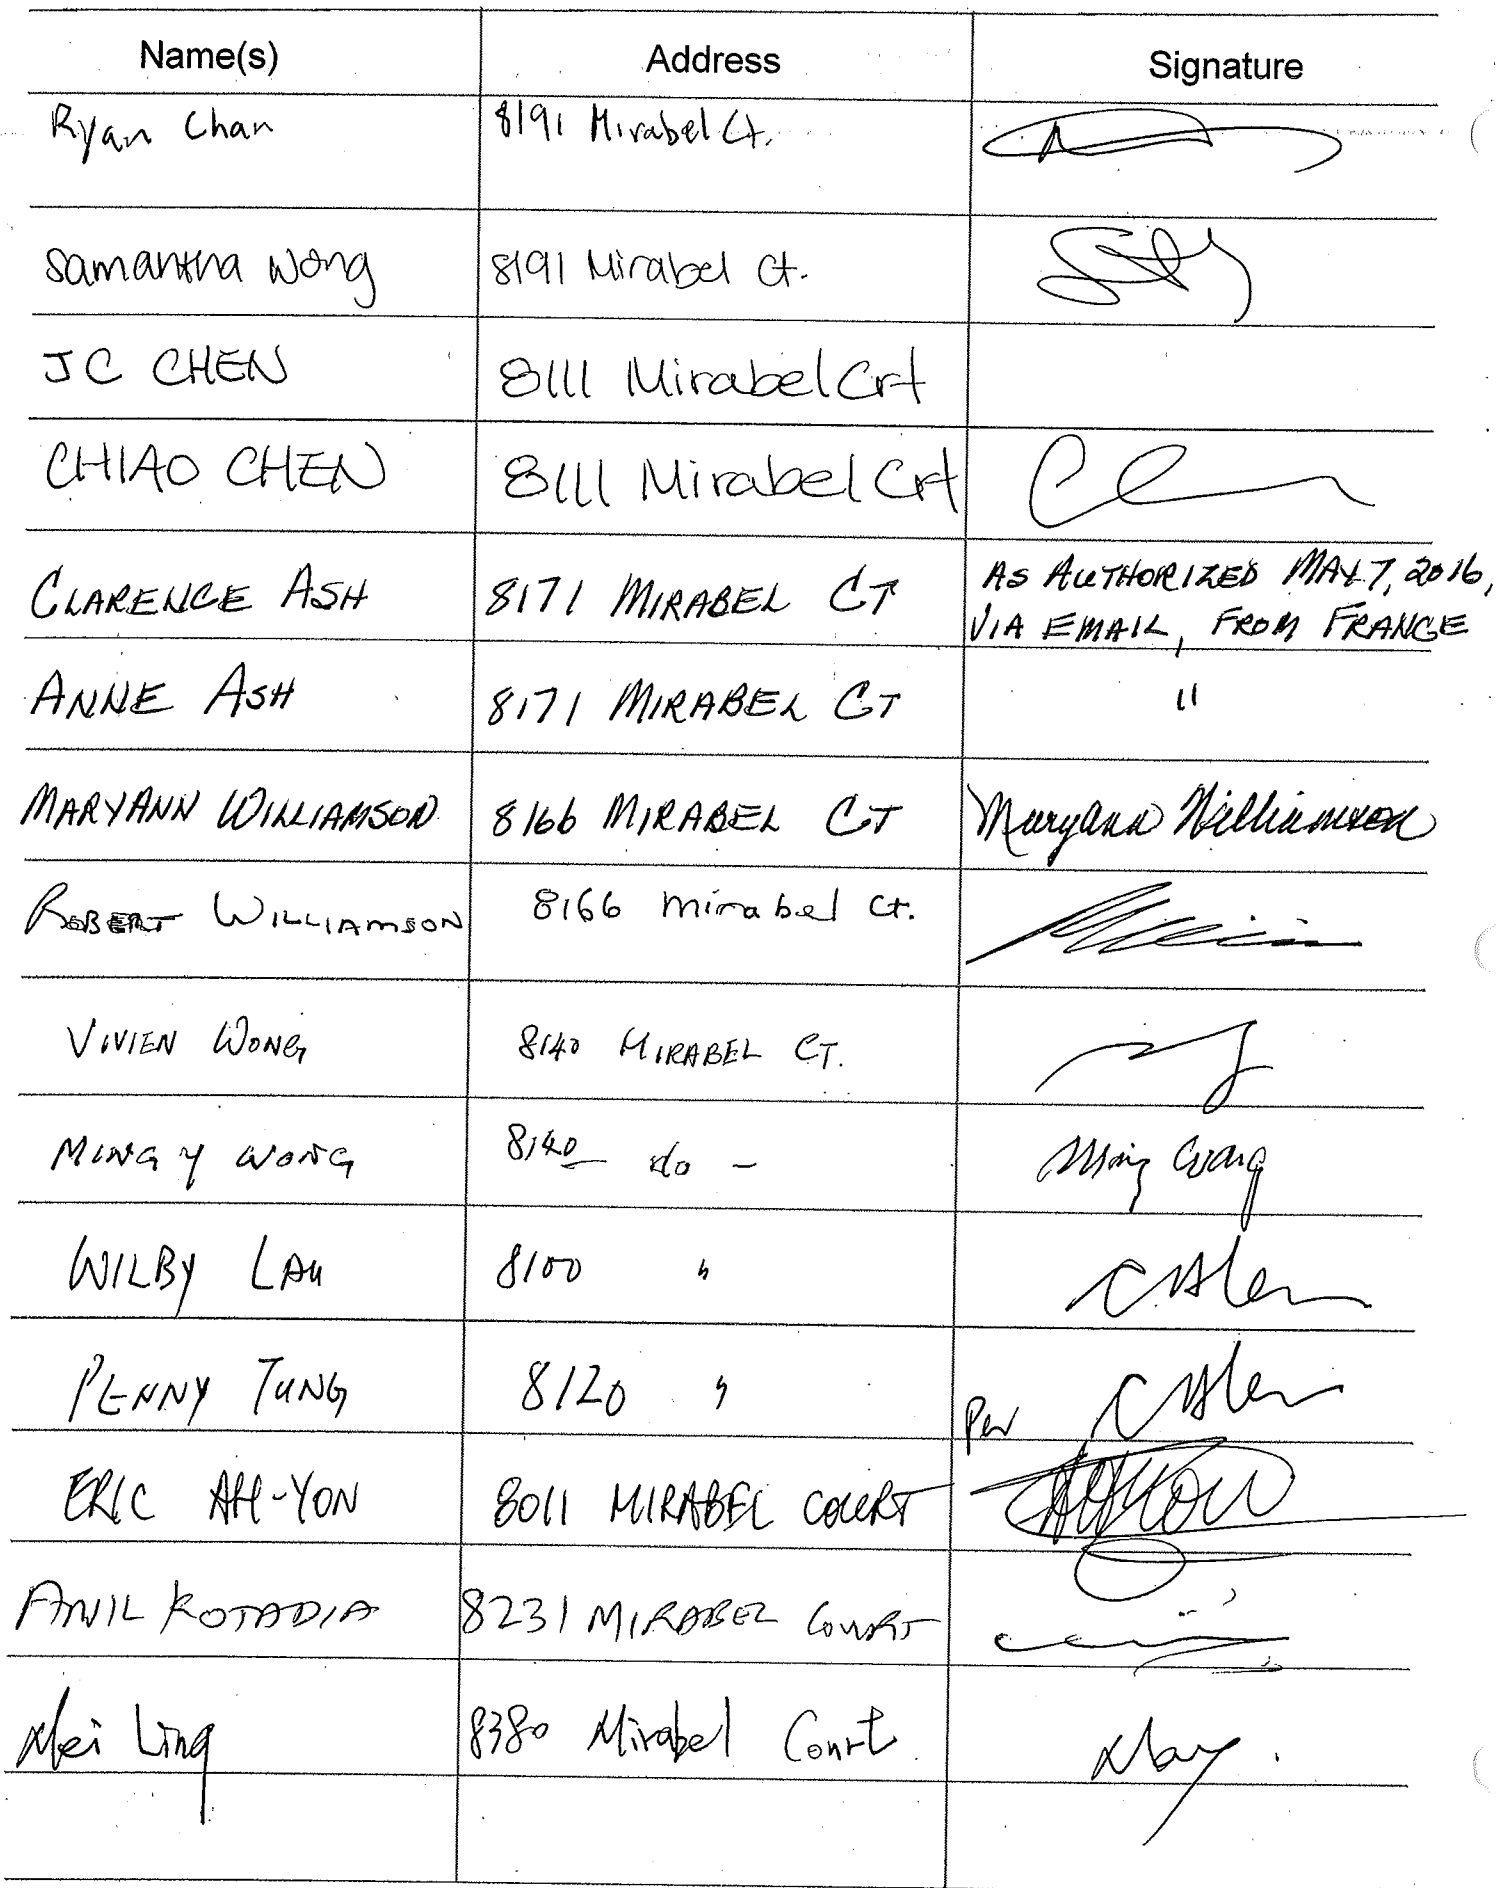 Name(s) Address Signature
Ryan Chan 8191 Mirabel Ct.
Samantha Wong 8191 Mirabel Ct.
JC CHEN 8111 Mirabel Crt
CHIAO CHEN 8111 Mirabel Crt
CLARENCE ASH 8171 MIRABEL CT AS AUTHORIZED MAY 7, 2016,
VIA EMAIL, FROM FRANCE
ANNE ASH 8171 MIRABEL CT "
MARYANN WILLIAMSON 8166 MIRABEL CT Maryann Williamson
ROBERT WILLIAMSON 8166 Mirabel Ct.
VIVIEN WONG 8140 MIRABEL CT.
MING Y WONG 8140 - do - Ming Wong
WILBY LAU 8100 "
PENNY TUNG 8120 " Per
ERIC AH-YON 8011 MIRABEL COURT
ANIL KOTADIA 8231 MIRABEL COURT
Mei Ling 8380 Mirabel Court May.